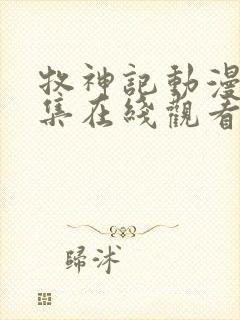 牧神記動漫
集在綫觀看
歸沭